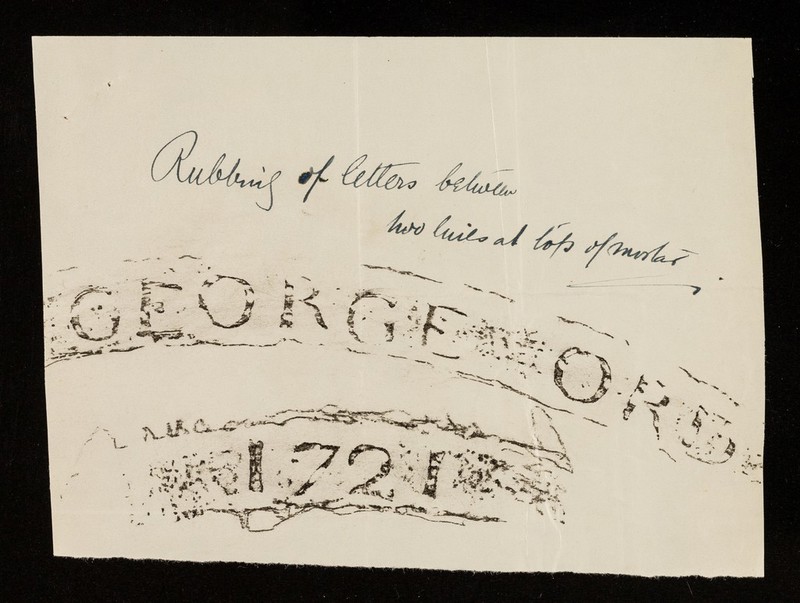 Rubbing of letters between
two lines at top of mortar
GEORGE ORD
1721